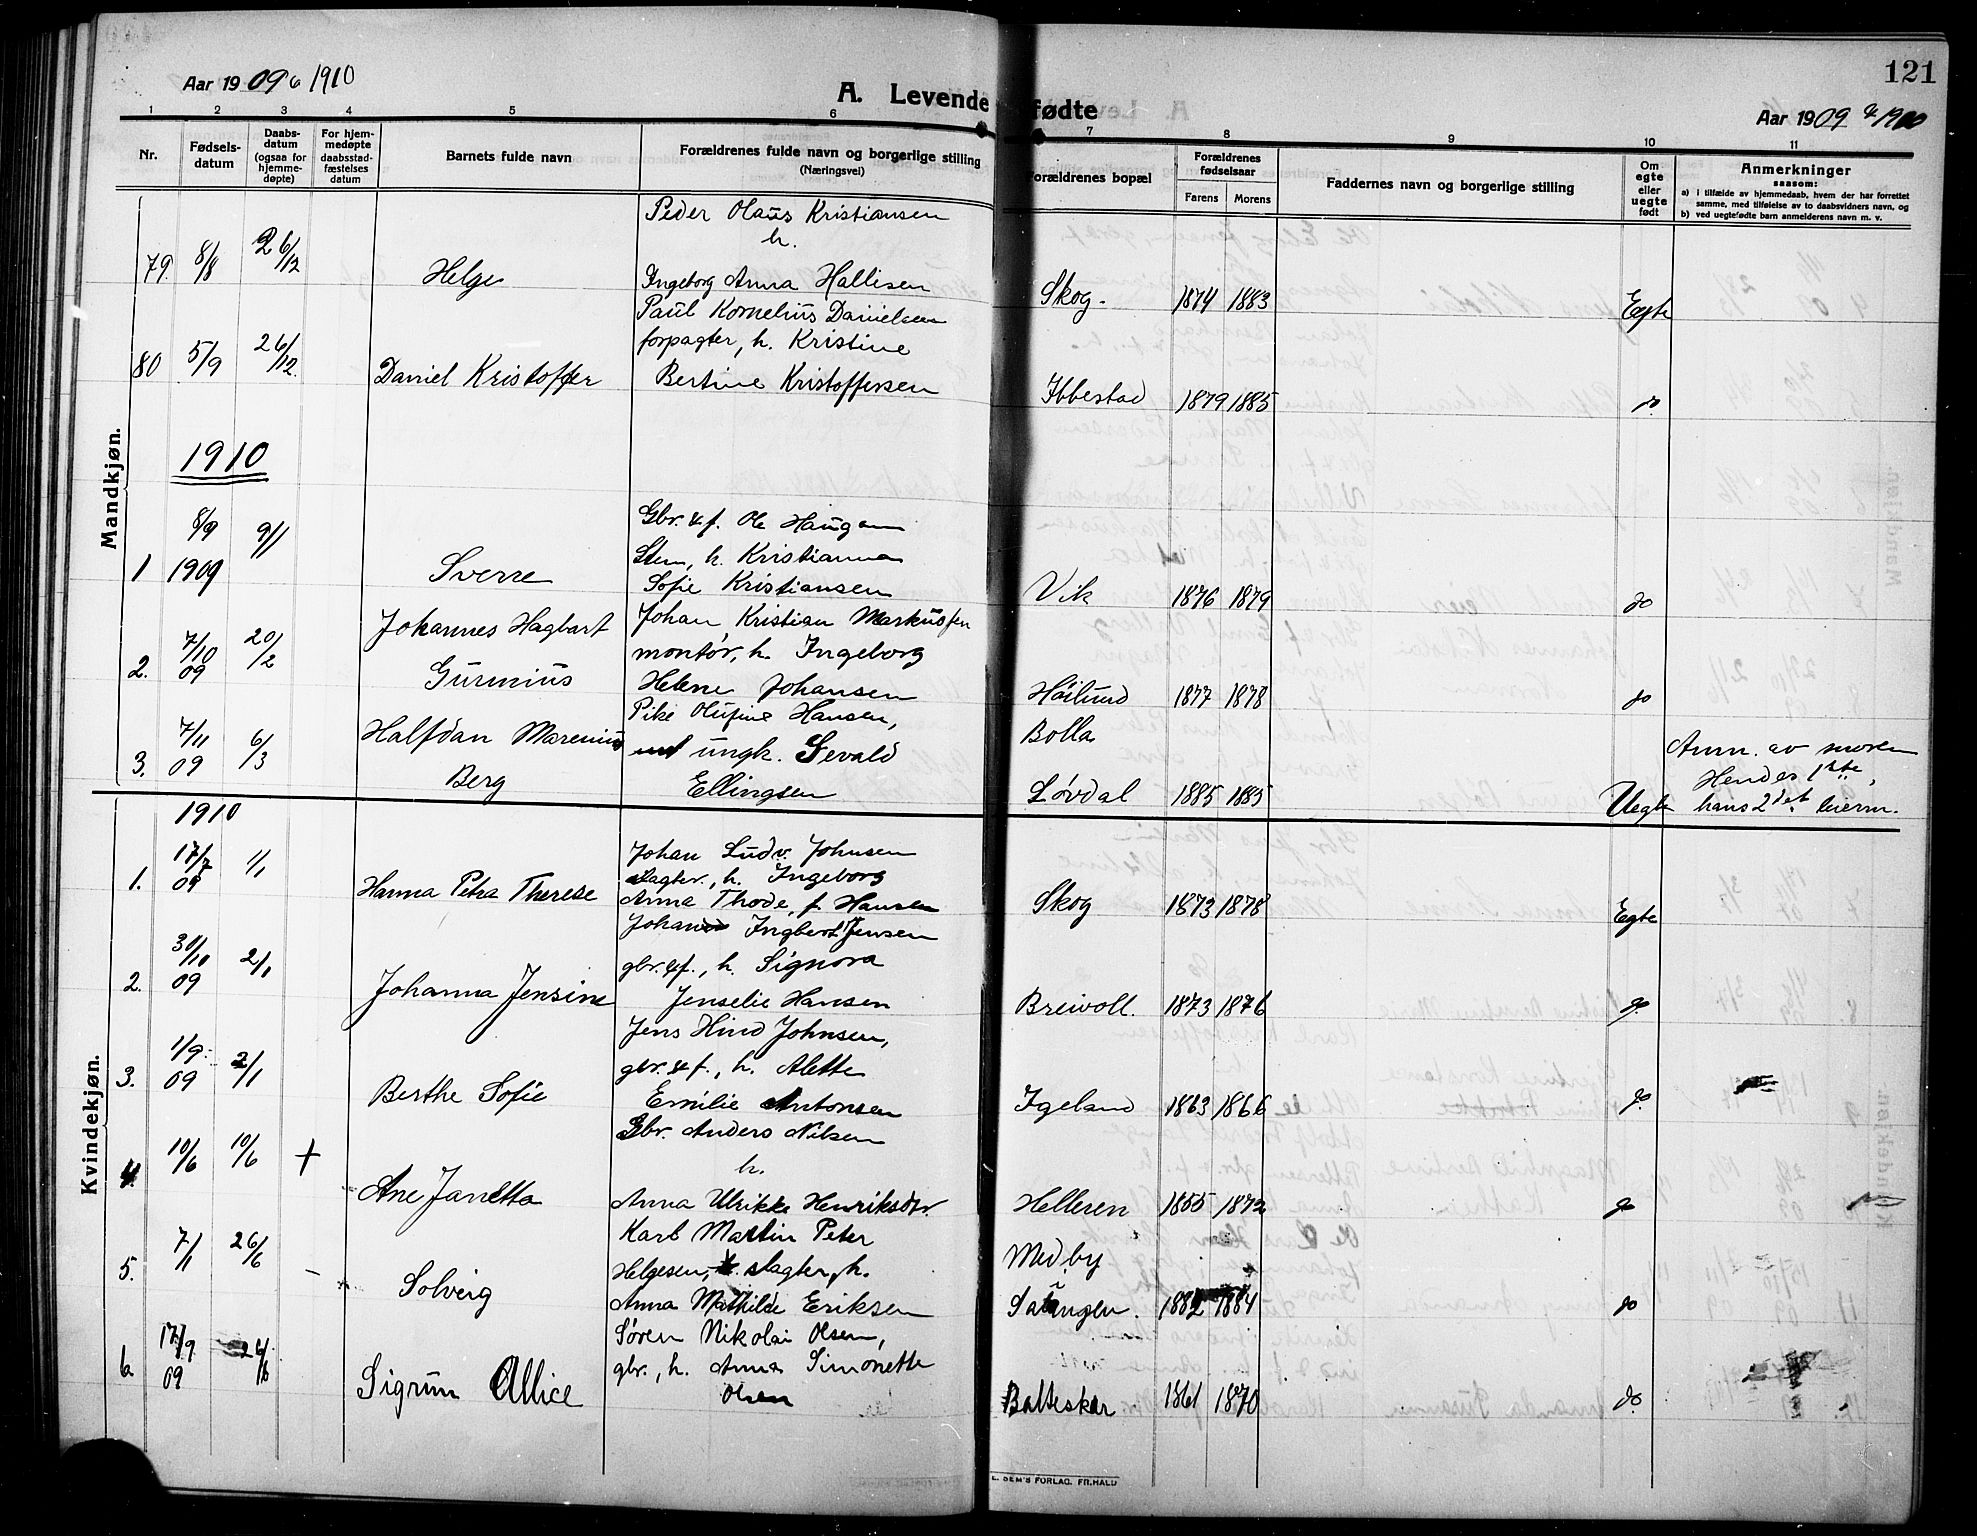 Aar 1909 & 1910
A. Levende fødte
Aar 1909 & 1910
121
1 2 3 4 5 6 7 8 9 10 11
Nr.
Fødselsdatum
Daabsdatum (ogsaa for hjemmedøpte)
For hjemmedøpte daabsstadfæstelses datum
Barnets fulde navn
Forældrenes fulde navn og borgerlige stilling
(Næringsvei)
Forældrenes bopæl
Forældrenes fødselsaar
Farens Morens
Faddernes navn og borgerlige stilling
Om egte eller uegte født
Anmerkninger
saasom:
a) i tilfælde av hjemmedaab, hvem der har forrettet
samme, med tilføielse av to daabsvidners navn, og
b) ved uegtefødte barn anmelderens navn m. v.
Mandkjøn.
Peder Olaus Kristiansen
h.
79. 8/8 26/12 Helge Ingeborg Anna Hallisen Skog. 1874 1883 Egte
Paul Kornelius Danielsen
forpagter, h. Kristine
80 5/9 26/12. Daniel Kristoffer Bertine Kristoffersen Ibbestad 1879 1885 do.
1910
8/9 9/1 Gbr. & f. Ole Haugan
Sten, h. Kristianna
1 1909 Sverre Sofie Kristiansen Vik 1876 1879 do
Johannes Hagbart Johan Kristian Markussen
2. 7/10 09 20/2 montør, h. Ingeborg
Gunnius Helene Johansen Høilund 1877 1878 do
Pike Olufine Hansen, Bolla
3. 7/11 09 6/3 Halfdan Marenius ungk. Sevald Anm. av moren
Berg Ellingsen Løvdal 1885 1885 Uegte Hendes 1ste,
hans 2det leierm.
Kvindekjøn.
1910
Johan Ludv. Johnsen
1. 17/7 09 1/1 slagter, h. Ingeborg
Hanna Petra Therese Anna Thode, f. Hansen Skog 1873 1878 Egte
Johan Ingbert Jensen
2. 30/10 09 2/1 gbr. & f., h. Signora
Johanna Jensine Jenselie Hansen Breivoll. 1873 1876 do.
Jens Hind Johnsen,
3. 1/9 09 2/1 gbr. & f., h. Alette
Berthe Sofie Emilie Antonsen Igeland 1863 1866 do.
Gbr. Anders Nilsen
4. 10/6 10/6 + h.
Ane Janetta Anna Ulrikke Henriksdtr. Helleren 1855 1872 do
Karl Martin Peter
5. 7/1 26/6 – Solveig Helgesen, slagter, h. Medby
Anna Mathilde Eriksen Salangen. 1882 1884 do
Søren Nikolai Olsen,
6 17/9 09 26/6 gbr., h. Anna Simonette
Sigrun Allice Olsen Balteskar 1861 1870 do.
SEM'S FORLAG. FR.HALD